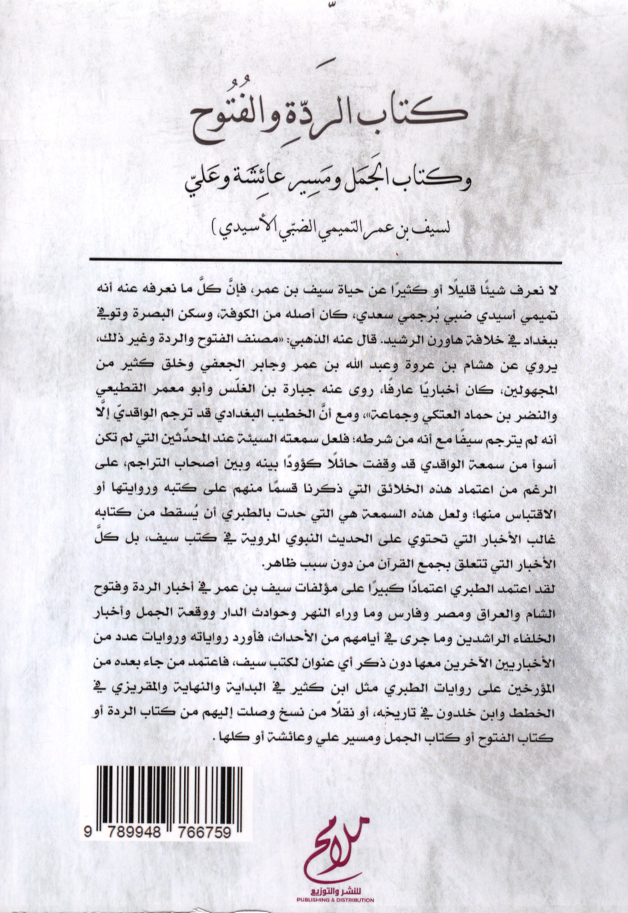 كتاب الردّةِ والفُتُوح
وكتاب الجَمَل ومَسِير عائِشَة وعَليّ
لسيف بن عمر التميمي الضبّي الأسيدي)
لا نعرف شيئًا قليلًا أو كثيرًا عن حياة سيف بن عمر، فإنَّ كلَّ ما نعرفه عنه أنه
تميمي أسيدي ضبي بُرجمي سعدي، كان أصله من الكوفة، وسكن البصرة وتوفي
ببغداد في خلافة هاورن الرشيد. قال عنه الذهبي: «مصنف الفتوح والردة وغير ذلك،
يروي عن هشام بن عروة وعبد الله بن عمر وجابر الجعفي وخلق كثير من
المجهولين، كان أخباريًا عارفًا، روى عنه جبارة بن الغلّس وأبو معمر القطيعي
والنضر بن حماد العتكي وجماعة»، ومع أنَّ الخطيب البغدادي قد ترجم الواقديّ إلَّا
أنه لم يترجم سيفًا مع أنه من شرطه؛ فلعل سمعته السيئة عند المحدِّثين التي لم تكن
أسوأ من سمعة الواقدي قد وقفت حائلًا كؤودًا بينه وبين أصحاب التراجم، على
الرغم من اعتماد هذه الخلائق التي ذكرنا قسمًا منهم على كتبه وروايتها أو
الاقتباس منها؛ ولعل هذه السمعة هي التي حدت بالطبري أن يُسقط من كتابه
غالب الأخبار التي تحتوي على الحديث النبوي المروية في كتب سيف، بل كلَّ
الأخبار التي تتعلق بجمع القرآن من دون سبب ظاهر.
لقد اعتمد الطبري اعتمادًا كبيرًا على مؤلفات سيف بن عمر في أخبار الردة وفتوح
الشام والعراق ومصر وفارس وما وراء النهر وحوادث الدار ووقعة الجمل وأخبار
الخلفاء الراشدين وما جرى في أيامهم من الأحداث، فأورد رواياته وروايات عدد من
الأخباريين الآخرين معها دون ذكر أي عنوان لكتب سيف، فاعتمد من جاء بعده من
المؤرخين على روايات الطبري مثل ابن كثير في البداية والنهاية والمقريزي في
الخطط وابن خلدون في تاريخه، أو نقلًا من نسخ وصلت إليهم من كتاب الردة أو
كتاب الفتوح أو كتاب الجمل ومسير علي وعائشة أو كلها.
9 789948 766759
ملامح
للنشر والتوزيع
PUBLISHING & DISTRIBUTION